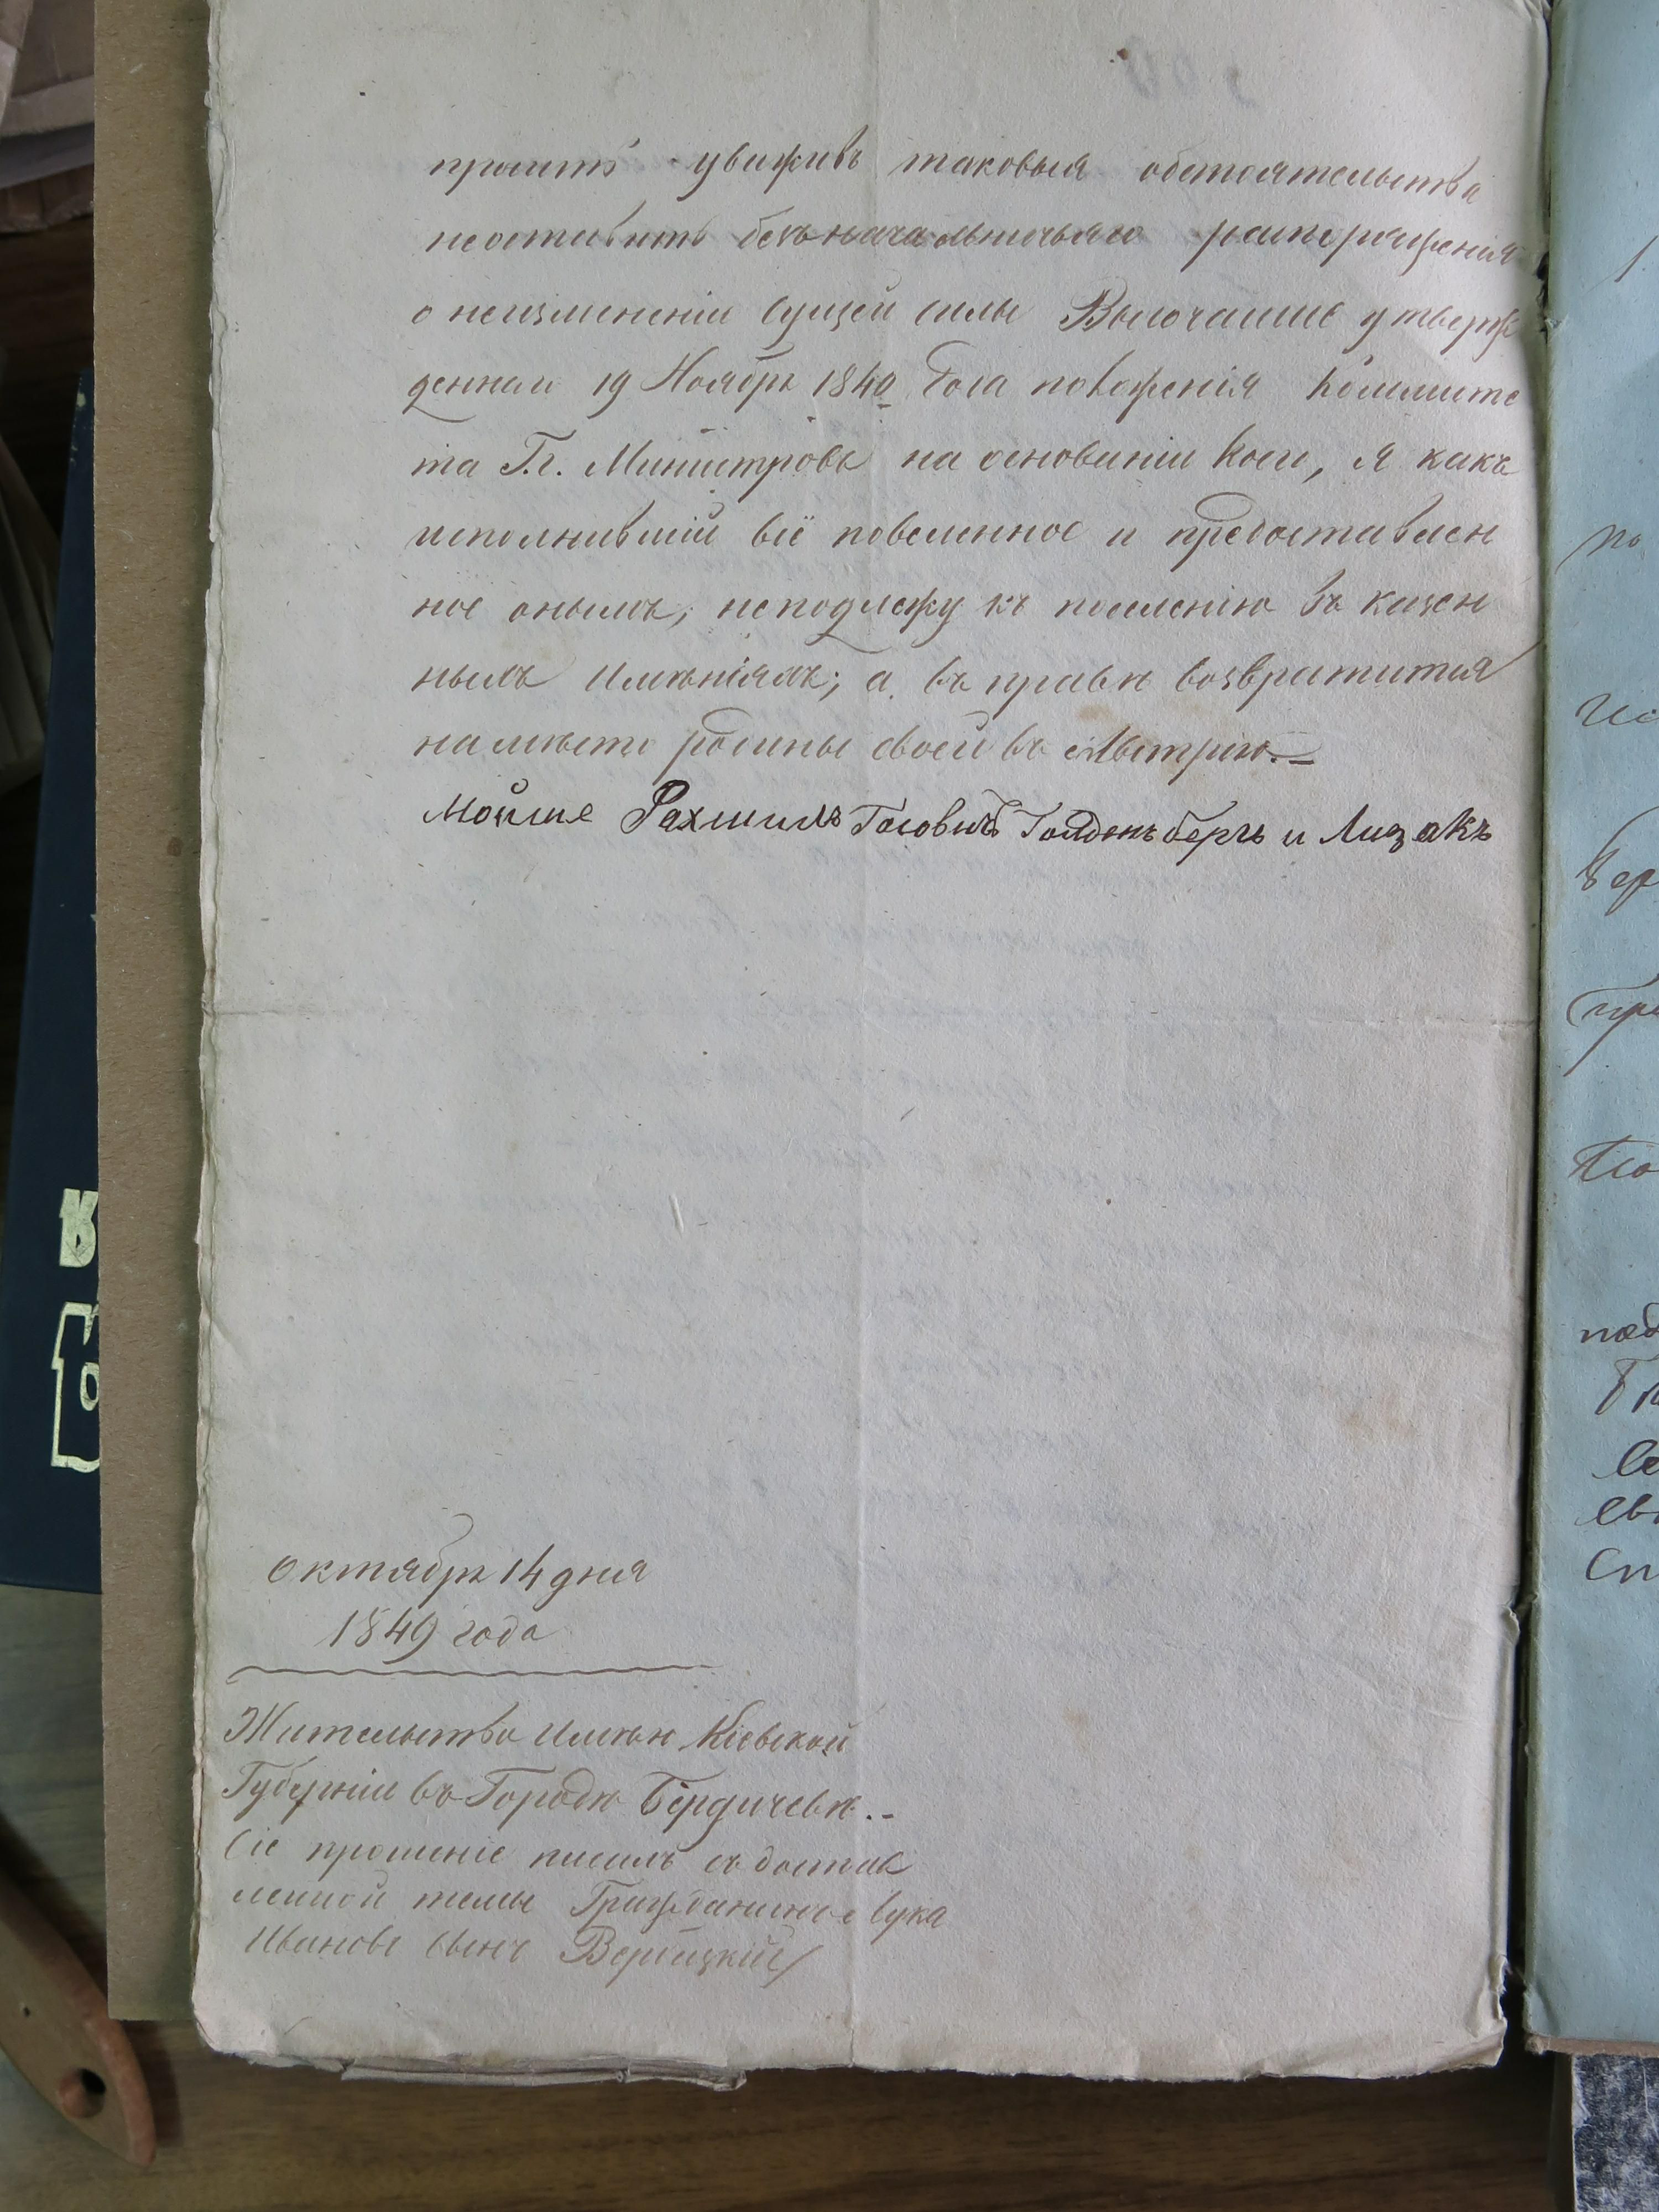 просить уваживъ таковыя обстоятельства
неоставить безъ начальничьяго распоряженія
о неизмененіи сущей силы Высочайше утверж
деннаи 19 Ноября 1840 Года положенія Коммите
та Г.г. Министровъ на основаніи Коего, я какъ
исполнившій всё повеленное и предоставлен
ное онымъ, неподлежу къ поселенію въ казен
ныхъ Именіяхъ; а въ праве возвратится
на место родины своей въ Австрію.—
Мойше Рахмиль Гоговичъ Голденъбергъ и Лизакъ
октября 14 дня
1849 года
Жительство Имею Кіевской
Губерніи въ Городе Бердичеве.–
Сіе прошеніе писалъ съ достав
ленной темы Гражданиное Лука
Иванове Сынъ Вербицкій
по
Вер
пр
по
под
Се
Сп